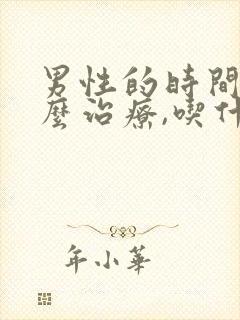 男性的時間
麼治療,喫什
年小華